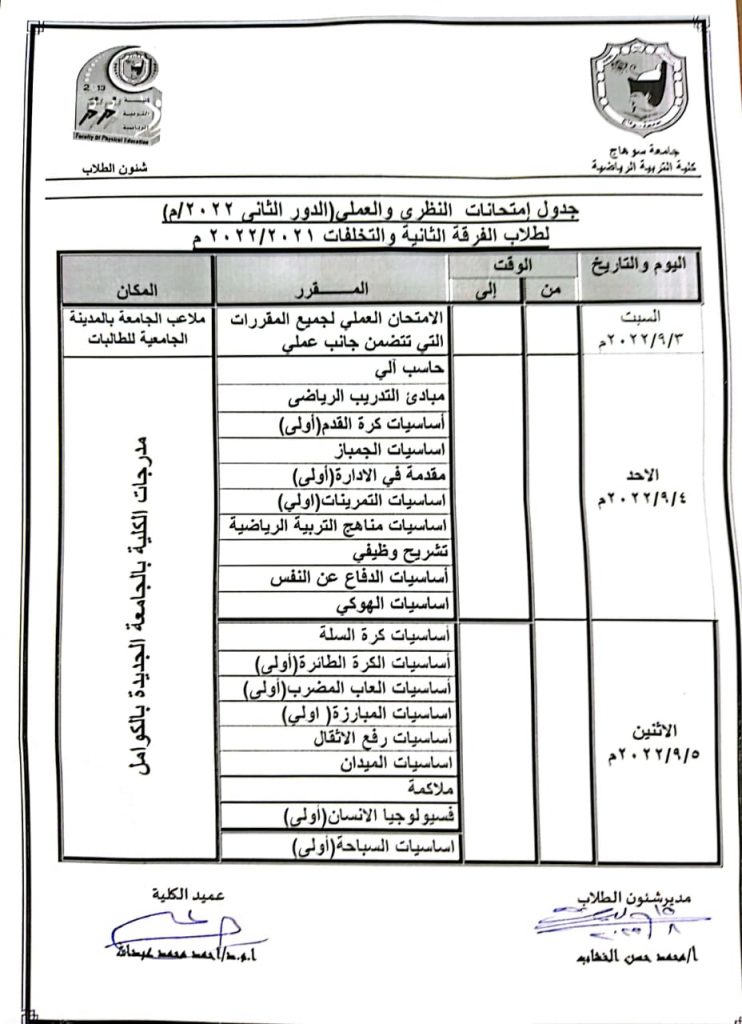 جامعة سوهاج
كلية التربية الرياضية
2013
كلية
التربية
الرياضية
Faculty Of Physical Education
شئون الطلاب
جدول إمتحانات النظرى والعملي(الدور الثانى ٢٠٢٢/م)
لطلاب الفرقة الثانية والتخلفات ٢٠٢٢/٢٠٢١ م
اليوم والتاريخ
الوقت
من
إلى
المـــــقرر
المكان
السبت
٢٠٢٢/٩/٣م
الامتحان العملي لجميع المقررات
التي تتضمن جانب عملي
ملاعب الجامعة بالمدينة
الجامعية للطالبات
الاحد
٢٠٢٢/٩/٤م
حاسب آلي
مبادئ التدريب الرياضى
أساسيات كرة القدم(أولى)
اساسيات الجمباز
مقدمة في الادارة(أولى)
اساسيات التمرينات(اولي)
اساسيات مناهج التربية الرياضية
تشريح وظيفي
أساسيات الدفاع عن النفس
اساسيات الهوكي
مدرجات الكلية بالجامعة الجديدة بالكوامل
الاثنين
٢٠٢٢/٩/٥م
أساسيات كرة السلة
أساسيات الكرة الطائرة(أولى)
أساسيات العاب المضرب(أولى)
اساسيات المبارزة( اولي)
أساسيات رفع الاثقال
اساسيات الميدان
ملاكمة
فسيولوجيا الانسان(أولى)
اساسيات السباحة(أولى)
مديرشئون الطلاب
أ/محمد حسن الخشاب
عميد الكلية
ا.م.د/أحمد محمد عبدالله